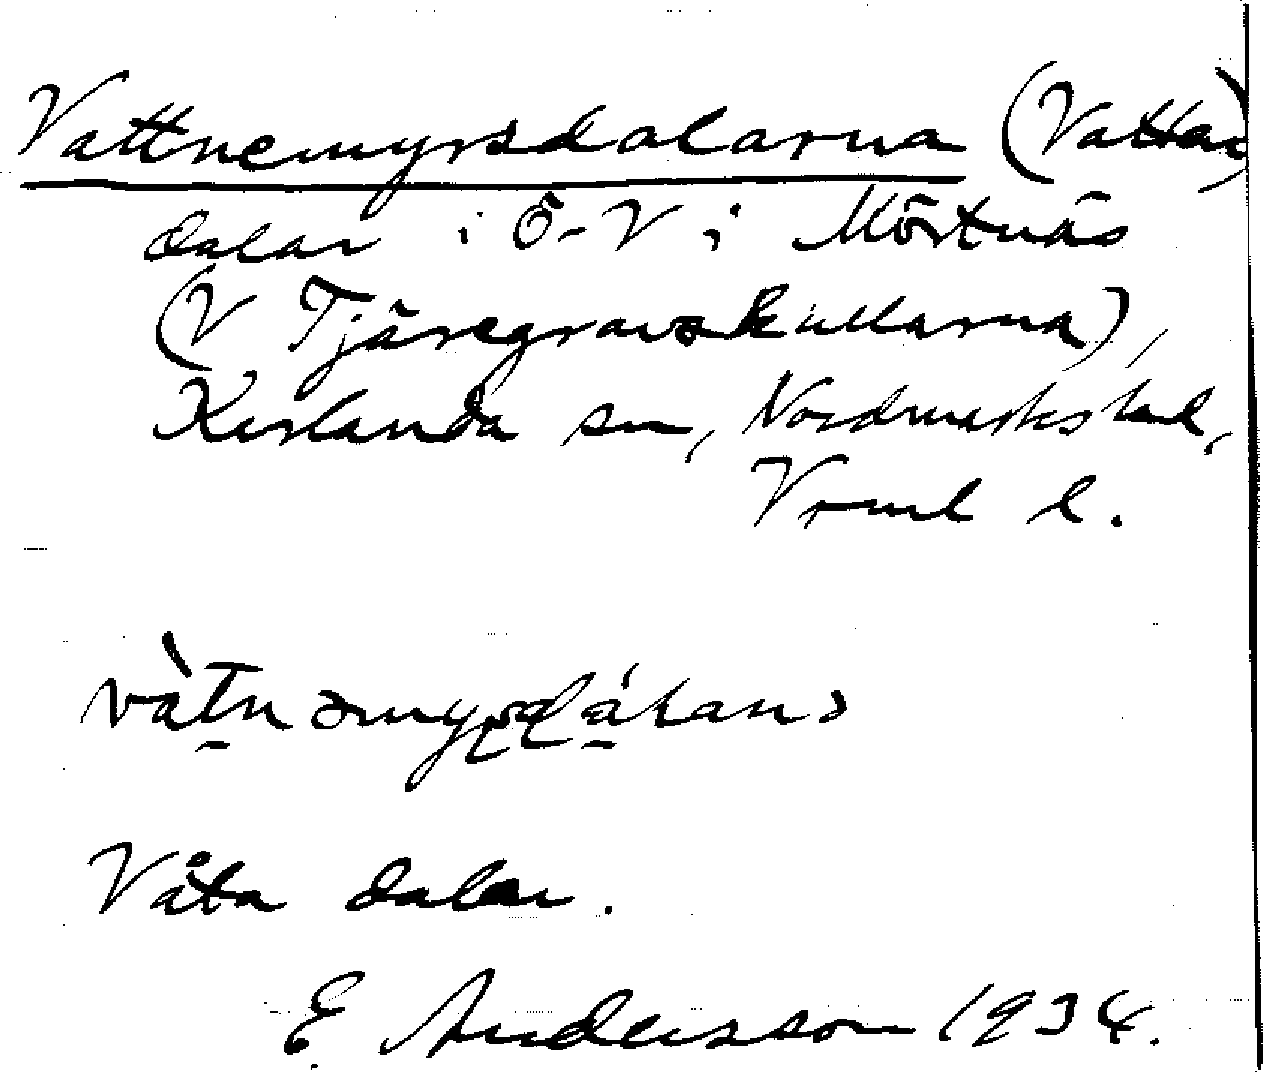 Vattnemyrsdalarna (Vattan)
dalar i Ö-V i Mörtnäs
(V Tjäregravskullarna),
Karlanda sn, Nordmarks hd,
Vrml l.
Våta dalar.
E Andersson 1934.